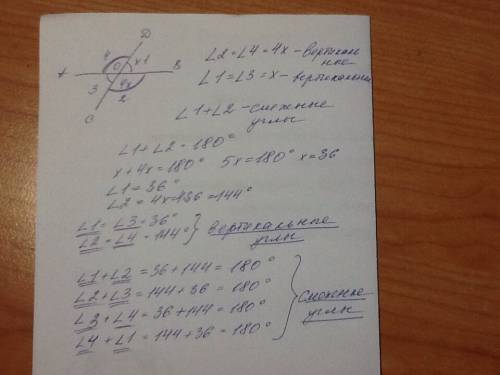 D
4 O x 1
A B
3 4x
2
C
∠2=∠4=4x - вертикаль
ные
∠1=∠3=x - вертикальные
∠1+∠2 - смежные
углы
∠1+∠2=180°
x+4x=180° 5x=180° x=36
∠1=36°
∠2=4x=436=144°
∠1=∠3=36°
∠2=∠4=144° } вертикальные
углы
∠1+∠2=36+144=180°
∠2+∠3=144+36=180°
∠3+∠4=36+144=180°
∠4+∠1=144+36=180°
} смежные
углы